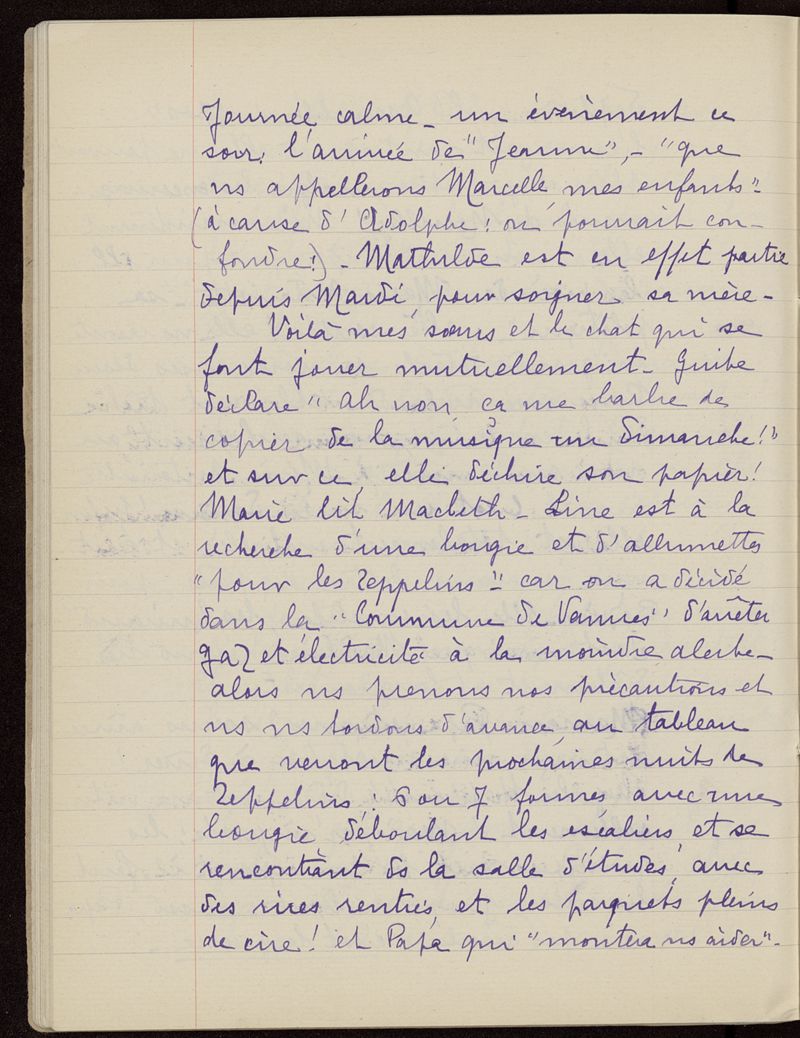 Journée calme – un évènement ce
soir : l'arrivée de "Jeanne", – "que
ns appellerons Marcelle, mes enfants"
(à cause d'Adolphe ! on pourrait con-
fondre !) – Mathilde est en effet partie
depuis Mardi, pour soigner sa mère –
Voilà mes sœurs et le chat qui se
font jouer mutuellement – Guite
déclare "Ah non, ça me barbe de
copier de la musique un dimanche !"
et sur ce, elle déchire son papier !
Marie lit Macbeth – Line est à la
recherche d'une bougie et d'allumettes
"pour les zeppelins" – car on a décidé
dans la "Commune de Vanves" d'arrêter
gaz et électricité à la moindre alerte –
alors ns prenons nos précautions et
ns ns tordons d'avance, au tableau
que verront les prochaines nuits de
Zeppelins : 6 ou 7 formes avec une
bougie déboulant les escaliers, et se
rencontrant ds la salle d'études, avec
des rires rentrés, et les parquets pleins
de cire ! et Papa qui "montera ns aider" –